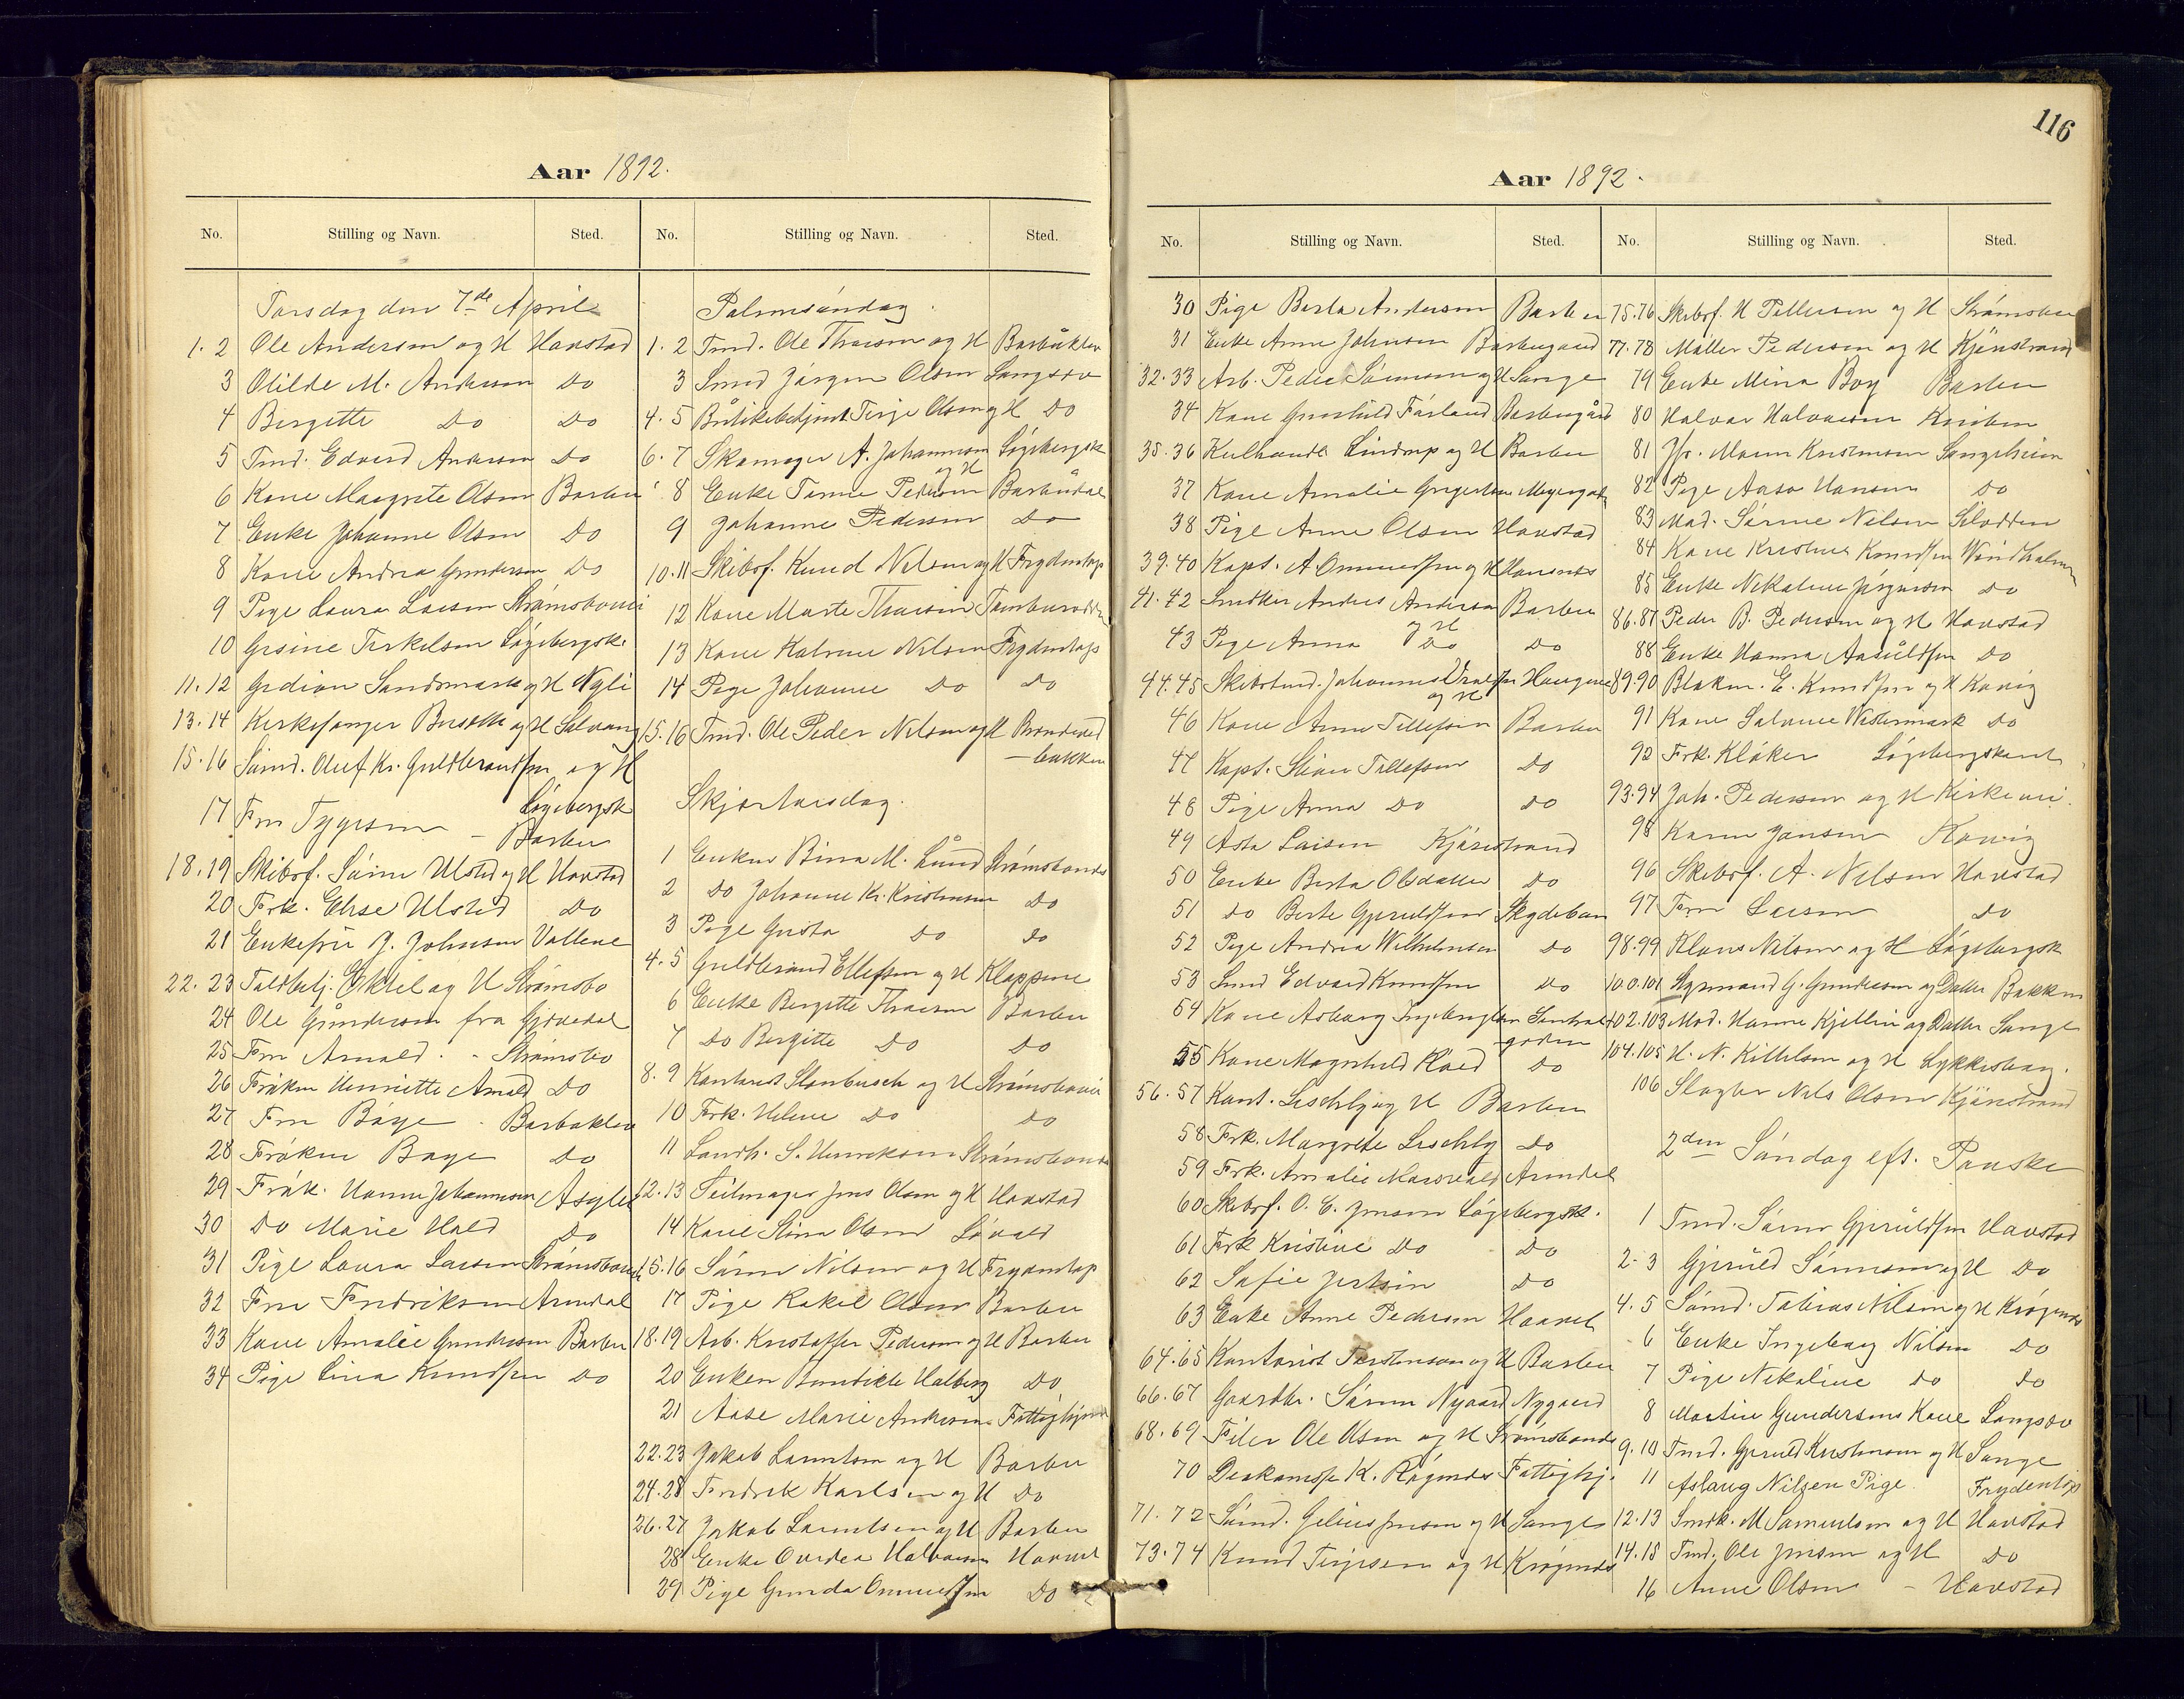 116
Aar 1892.
No. Stilling og Navn. Sted. No. Stilling og Navn. Sted.
Torsdag den 7de April
1. 2 Ole Anderson og H Havstad
3 Otilde M. Anderson Do
4 Birgitte Do Do
5 Tmd. Edvard Anderson Do
6 Kone Maagrete Olsen Barbu
7 Enke Johanne Olsen Do
8 Kone Andrea Gundersen Do
9 Pige Laura Larsen Strømsbouei
10 Gusine Terkelsen Løgebergsk.
11. 12 Gedion Sandsmark og H Nyli
13. 14 Kirkesanger og H Solvang
15. 16 Sømd. Oluf Kr. Guldbrandsen og H
Løgebergsk
17 Fru Tygesen - Barbu
18. 19 Skibsf. Søren Ulsted og H Havstad
20 Frk. Elise Ulsted Do
21 Enkefru J. Johnsen Vollene
22. 23 Toldbetj. Ekkel og H Strømsbo
24 Ole Gundersen fra Gjøvedal
25 Fru Arnold. - Strømsbo
26 Frøken Henriette Arnold Do
27 Fru Bøye - Barbakken
28 Frøken Bøye Do
29 Frøk. Hanna Johannesen Asylet
30 Do Marie Hald Do
31 Pige Laura Larsen Strømsbouei
32 Fru Fredriksen Arendal
33 Kone Amalie Gundersen Barbu
34 Pige Lina Knudsen Do
Palmesøndag.
1. 2 Tmd. Ole Thorsen og H Barbuklev
3 Smed Jørgen Olsen Langsæv
4. 5 Politibetjent Terje Olsen og H Do
6. 7 Skomager A. Johannesen og H Løgebergsk
8 Enke Tomine Pedersen Barbudal
9 Johanne Pedersen Do
10. 11 Skibsf. Knud Nilsen og H Frydentop
12 Kone Marte Thorsen Tamburodden
13 Kone Halvine Nilsen Frydentop
14 Pige Johanne Do Do
15. 16 Tmd. Ole Peder Nilsen og H Brændeved
- bakken
Skjærtorsdag.
1 Enken Bina M. Lund Strømsbouei
2 Do Johanne Kr. Kristensen Do
3 Pige Gusta Do Do
4. 5 Guldbrand Ellefsen og H Kloppene
6 Enke Birgitte Thorsen Barbu
7 Do Birgitte Do Do
8. 9 Kontorist Stambusch og H Strømsbouei
10 Frk. Helene Do Do
11 Landh. S. Henriksen Strømsbouei
12. 13 Seilmager Jens Olsen og H Havstad
14 Kone Stina Olsen Løvold
15. 16 Søren Nilsen og H Frydentop
17 Pige Rakel Olsen Barbu
18. 19 Arb. Kristoffer Pedersen og H Barbu
20 Enken Bendikte Halberg Do
21 Aase Marie Andersen Fattighjem
22. 23 Jakob Lauritsen og H Barbu
24. 25 Fredrik Karlsen og H Do
26. 27 Jakob Lauritsen og H Barbu
28 Enke Ovidea Halvorsen Havvet
29 Pige Gunda Ommundsen Do
Aar 1892.
No. Stilling og Navn. Sted. No. Stilling og Navn. Sted.
30 Pige Berta Andersen Barbu
31 Enke Anne Johnsen Barbugaard
32. 33 Arb. Peder Sørensen og H Lange
34 Kone Gunhild Førland Barbugård
35. 36 Kulhandl. Lindrup og H Barbu
37 Kone Amalie Gregersen Meyergade
38 Pige Anne Olsen Havstad
39. 40 Kapt. A Ommundsen og H
41. 42 Smedker Andres Andersen og H Barbu
43 Pige Anna Do Do
44. 45 Skibstmd. Johannes og H Haugene
46 Kone Anne Tellefsen Barbu
47 Kapt. Stian Tellefsen Do
48 Pige Anna Do Do
49 Asta Larsen Kjænstrand
50 Enke Berta Olsdatter Do
51 Do Berte Gjeruldsen Skydeban
52 Pige Andrea Wilhelmsen Do
53 Smed Edvard Knudsen Do
54 Kone Asborg Ingebrigtsen Sentral
gaden
55 Kone Magnhild Roed Do
56. 57 Kont. Leschly og H Barbu
58 Frk. Margrete Leschly Do
59 Frk. Amalie Marcvald Arendal
60 Skibsf. O. C. Jensen Løgebergsk.
61 Frk Kristine Do Do
62 Sofie Jertsen Do
63 Enke Anne Pedersen Havvet
64. 65 Kontorist Torstensen og H Barbu
66. 67 Gaardbr. Søren Nygaard Nygaard
68. 69 Filer Ole Olsen og H Strømsbouei
70 Diakonisse K. Røgenes Fattighj.
71. 72 Sømd. Gelius Jensen og H Lange
73. 74 Knud Terjesen og H Krøgenes
75. 76 Skibsf. H Tellefsen og H Strømsbu
77. 78 Møller Pedersen og H Kjænstrand
79 Enke Mina Boy Barbu
80 Halvor Halvorsen Kniben
81 Jfr. Maren Kristensen Langeheien
82 Pige Aase Hansen Do
83 Mad. Sørine Nilsen Solodden
84 Kone Kristine Knudsen Windholmen
85 Enke Nikoline Jørgensen Do
86. 87 Peder B. Pedersen og H Havstad
88 Enke Hanna Aasuldsen Do
89. 90 Blokm. E. Knudsen og H Kovig
91 Kone Salvine Westermark Do
92 Frk. Kløcker Løgebergskont
93. 94 Joh. Pedersen og H Kirkevei.
95 Karen Jansen Kovig
96 Skibsf. A. Nilsen Havstad
97 Fru Larsen Do
98. 99 Klaus Nilsen og H Løgebergsk
100. 101 Sigmand G. Gundersen og Datter Bakken
102. 103 Mad. Hanne Kjellin og Datter Lange
104. 105 H. N. Kittelsen og H Lykkesborg.
106 Slagter Nils Olsen Kjænstrand
2den Søndag eft. Paaske
1 Tmd. Søren Gjeruldsen Havstad
2. 3 Gjeruld Sørensen og H Do
4. 5 Sømd. Tobias Nilsen og H Krøgenes
6 Enke Ingeborg Nilsen Do
7 Pige Nikoline Do Do
8 Martin Gundersens Kone Langsæv
9. 10 Tmd. Gjeruld Kristensen og H Lange
11 Aslaug Nilsen Pige Frydentop
12. 13 Smedk. M Samuelsen og H Havstad
14. 15 Tmd. Ole Jensen og H Do
16 Anne Olsen - Havstad